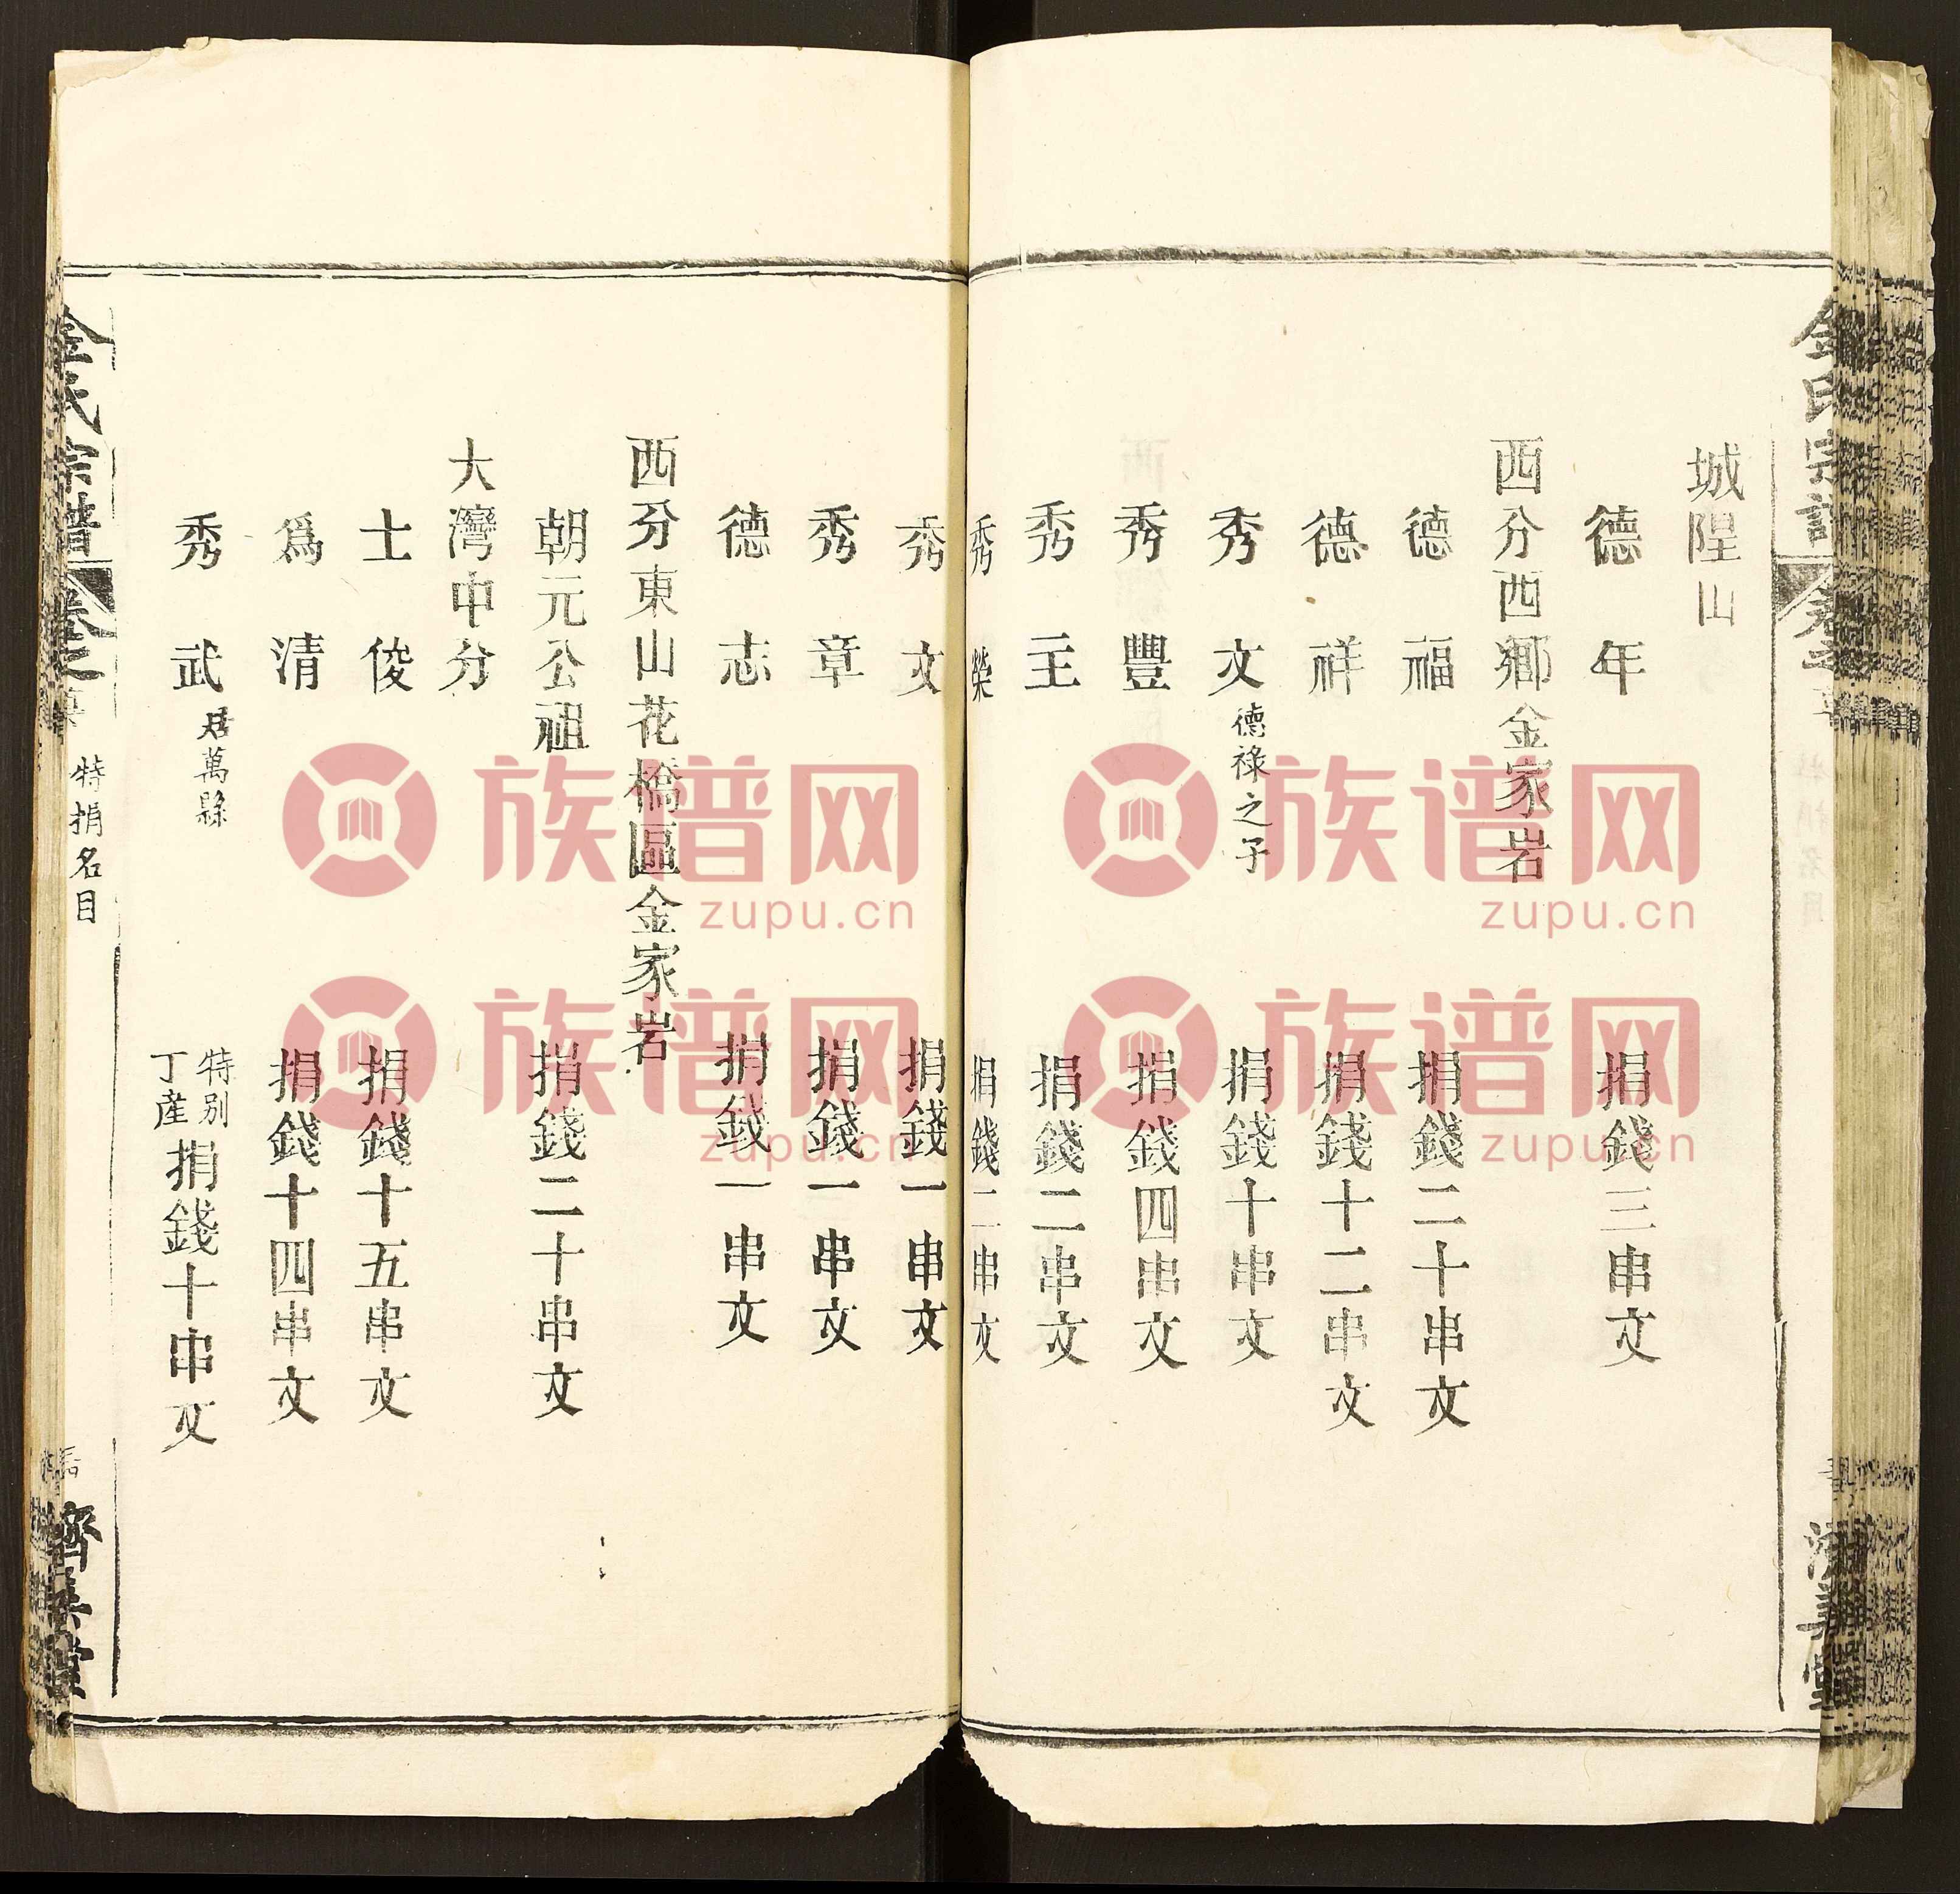 城隍山
德年 捐錢三串文
西分西鄉金家岩
德福 捐錢二十串文
德祥 捐錢十二串文
秀文 德祿之子 捐錢十串文
秀豐 捐錢四串文
秀主 捐錢二串文
秀榮 捐錢二串文
秀文 捐錢一串文
秀章 捐錢一串文
德志 捐錢一串文
西分東山花橋區金家岩
朝元公祖 捐錢二十串文
大灣中分
士俊 捐錢十五串文
為清 捐錢十四串文
秀武 居萬縣 特别丁產 捐錢十串文
金氏宗譜 特捐名目
族谱网
zupu.cn
族谱网
zupu.cn
族谱网
zupu.cn
族谱网
zupu.cn